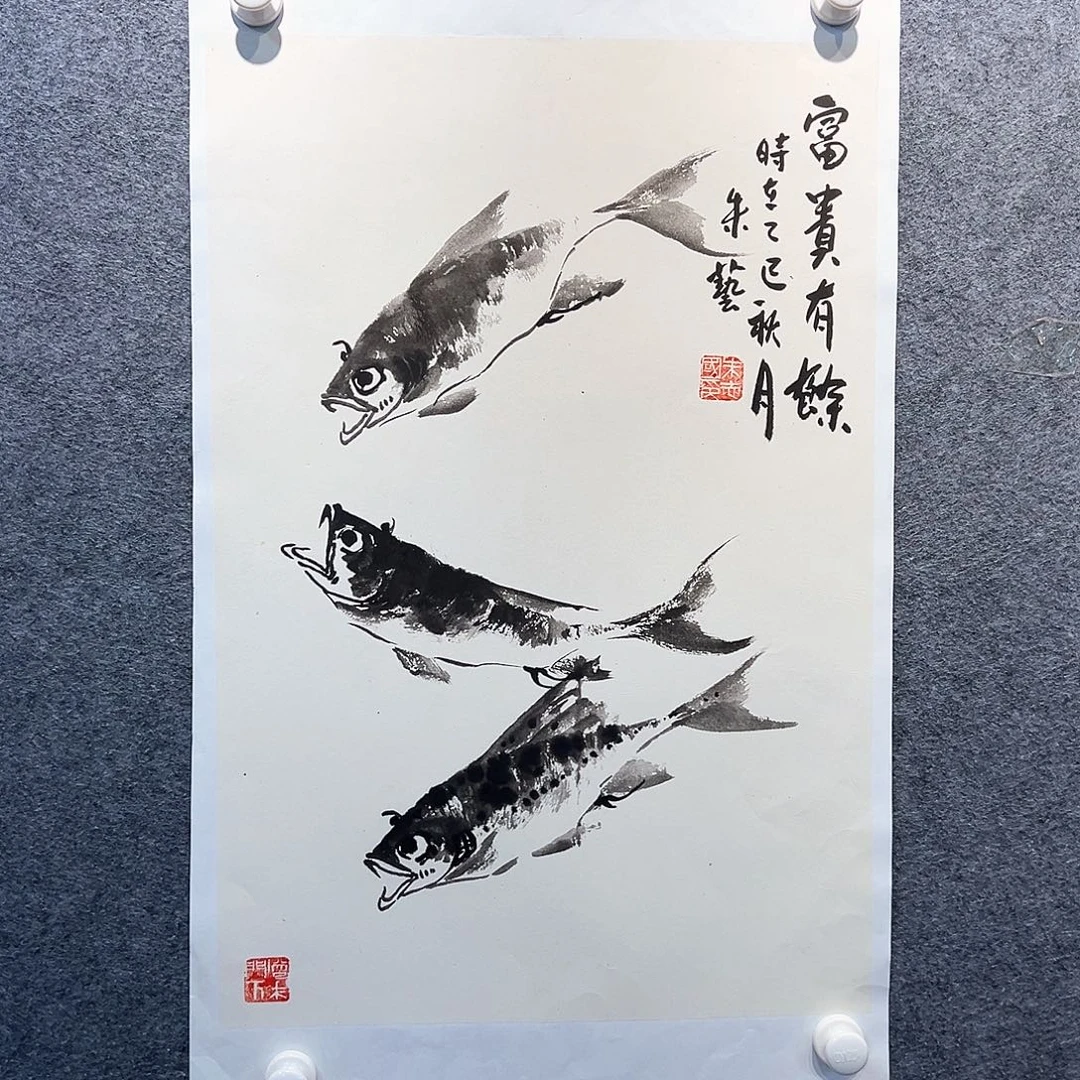 富貴有餘
時在乙巳秋月
朱藝